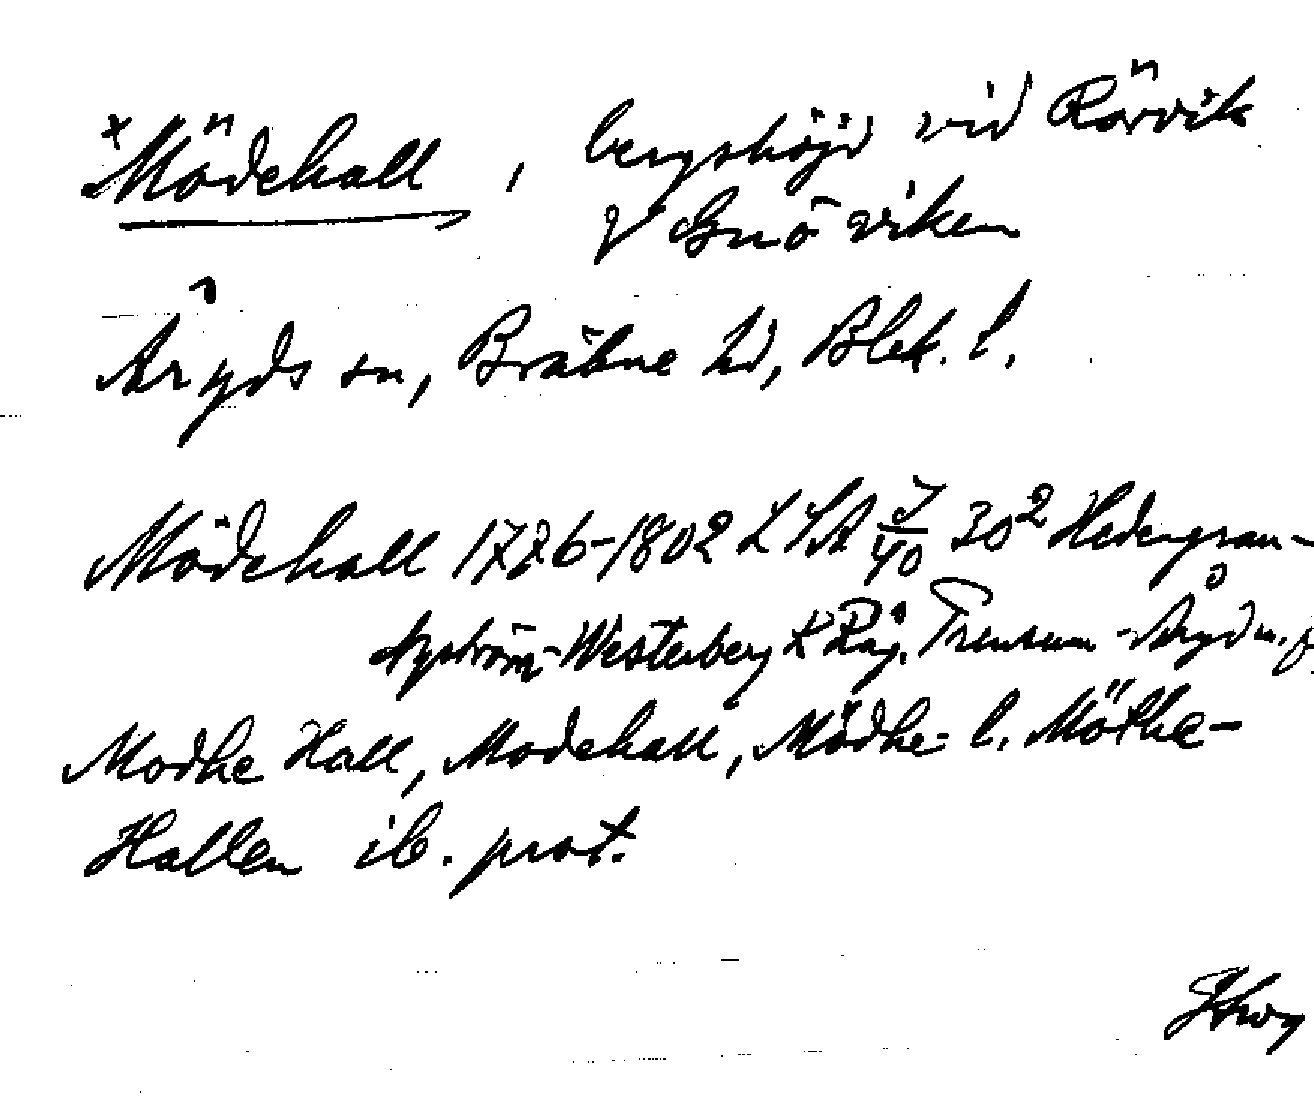 ×Mödehall, bergshöjd vid Rörvik
V Gnöviken
Åryds sn, Bräkne hd, Blek. l.
Mödehall 1726-1802 LSA J/40 30² Hedengran-
Nyström-Westerberg K Råg. Trensum - Åryd m. fl.
Modhe Hall, Modehall, Mödhe- l. Möthe-
Hallen ib. prot.